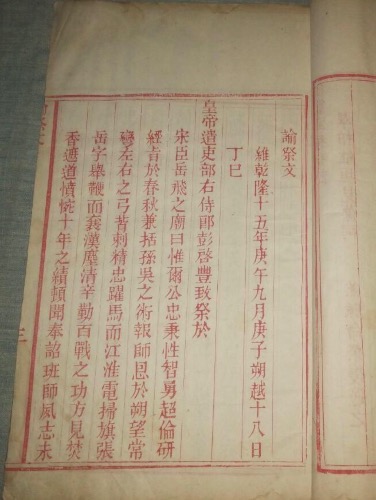 諭祭文
維乾隆十五年庚午九月庚子朔越十八日
丁巳
皇帝遣吏部右侍郎彭啓豐致祭於
宋臣岳飛之廟曰惟爾公忠秉性智勇超倫研
經旨於春秋兼括孫吳之術報師恩於朔望常
彎左右之弓背刺精忠躍馬而江淮電掃旗張
岳字舉鞭而襄漢塵清辛勤百戰之功方見焚
香遮道憤惋十年之績頓聞奉詔班師夙志未
三